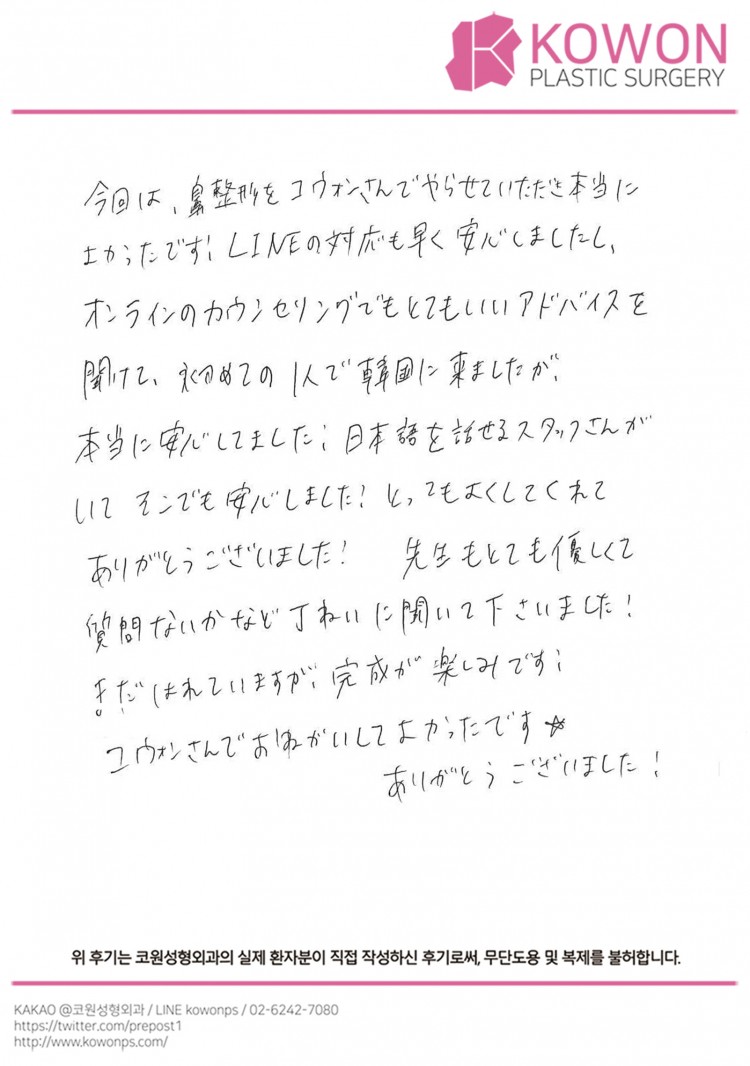 KOWON
PLASTIC SURGERY
今回は、鼻整形をコウォンさんでやらせていただき本当に
よかったです! LINEの対応も早く安心しましたし、
オンラインのカウンセリングでもとてもいいアドバイスを
聞けて、初めての1人で韓国に来ましたが、
本当に安心してました! 日本語を話せるスタッフさんが
いて そこでも安心しました! とってもよくしてくれて
ありがとうございました! 先生もとても優しくて
質問ないかなど丁ねいに聞いて下さいました!
まだはれていますが、完成が楽しみです!
コウォンさんでおねがいしてよかったです☆
ありがとうございました!
위 후기는 코원성형외과의 실제 환자분이 직접 작성하신 후기로써, 무단도용 및 복제를 불허합니다.
KAKAO @코원성형외과 / LINE kowonps / 02-6242-7080
https://twitter.com/prepost1
http://www.kowonps.com/